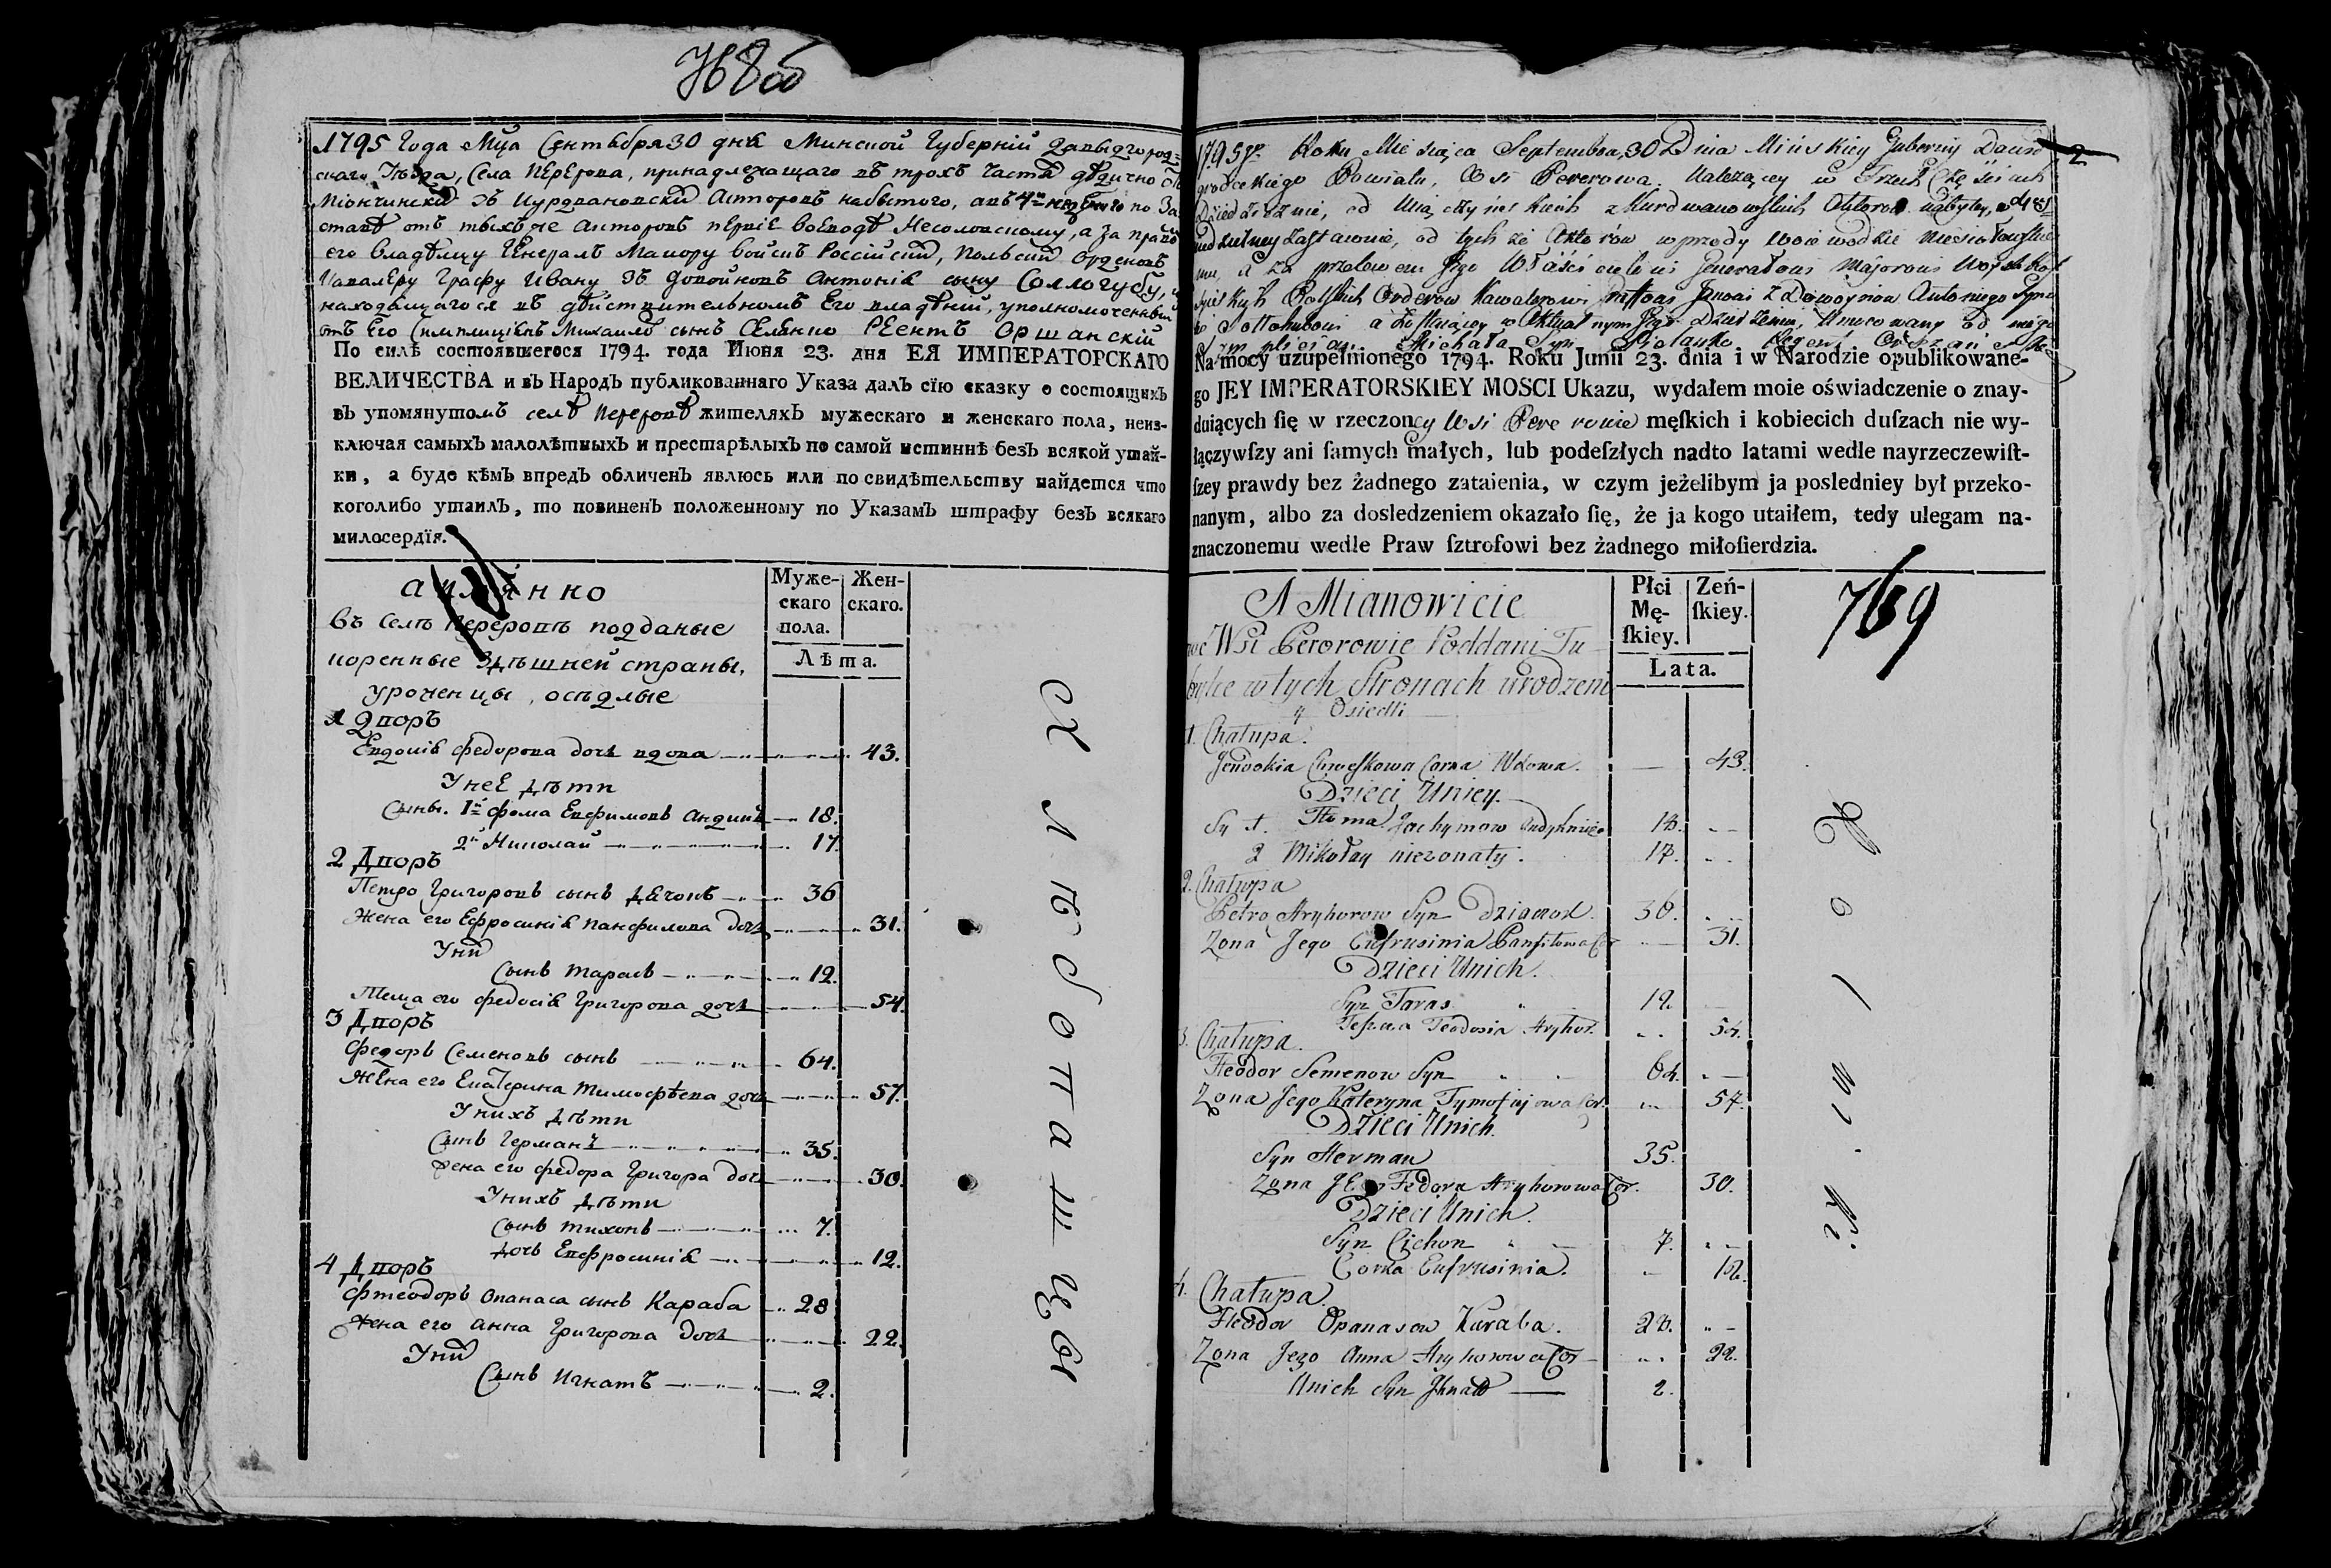 768об
1795 Года Мца Сентября 30 дня Минской Губерній Давыдгород=
скаго Уѣзда, Села Перерова, принадлежащаго въ трохъ частя дѣдично
Анторовъ набытого, а въ по За
ставѣ отъ тыхъ же Анторовъ перше воеводѣ Несоловскому, а за правомъ
его владѣлцу Генералъ Маиору войскъ Россійскихъ, Польскихъ орденовъ
Кавалеру Графу Ивану Зъ Довойновъ Антонія сыну Соллогубу,
находящагося въ дѣйствительномъ Его владѣній, уполномоченный
отъ Его Михаилъ сынъ Реентъ Оршанскій
По силѣ состоявшегося 1794. года Июня 23. дня ЕЯ ИМПЕРАТОРСКАГО
ВЕЛИЧЕСТВА и въ Народъ публикованнаго Указа далъ сїю сказку о состоящихъ
въ упомянутомъ селѣ Переровѣ жителяхъ мужескаго и женскаго пола, неиз-
ключая самыхъ малолѣтныхъ и престарѣлыхъ по самой истиннѣ безъ всякой утай-
ки, а буде кѣмъ впредъ обличенъ явлюсь или по свидѣтельству найдется что
коголибо утаилъ, то повиненъ положенному по Указамъ штрафу безъ всякаго
милосердїя.
а имянно
Муже-скаго пола.
Жен-скаго.
Въ Селѣ Переровѣ подданые
коренные Здѣшней страны,
Лѣта.
уроченцы, осѣдлые
1 Дворъ
Евдокія Федорова дочь вдова 43.
У нее дѣти
Сыны. 1й Фома Евфимовъ 18.
2й Николай 17.
2 Дворъ
Петро Григоровъ сынъ Дячокъ 36
Жена его Ефросинія Панфилова дочь 31.
У них
Сынъ Тарасъ 12.
Теща его Федосія Григорова дочь 54.
3 Дворъ
Федоръ Семеновъ сынъ 64.
Жена его Екатерина Тимофѣева дочь 57.
У нихъ дѣти
Сынъ Германъ 35.
Жена его Федора Григора дочь 30.
У нихъ дѣти
Сынъ Тихонъ 7.
Дочь Евфросинія 12.
4 Дворъ
Фтеодоръ Опанаса сынъ Караба 28
Жена его Анна Григорова дочь 22.
У них
Сынъ Игнатъ 2.
1795go Roku Miesiąca Septembra, 30 Dnia Mińskiey Guberny Dawid
2
grodzkiego Powiatu, Wsi Pererowa. Należącey w Trzech Częściach
Dziedzicznie, od z Murdwanowskich Aktorow nabytey,
zastawnie, od tych że Aktorów wprzódy Woiewodzie Niesiołowskie
mu, a za prawem Jego Właścicielowi Generałowi Majorowi Woysk
Polskich Orderow Kawalerowi Janowi z Dowoynow Antoniego Syno
wi Sołłohubowi a w Aktualnym Jego Dzierżeniu, Umocowany od niego
Michała Syn Regent
Na mocy uzupełnionego 1794. Roku Junii 23. dnia i w Narodzie opublikowane-
go JEY IMPERATORSKIEY MOSCI Ukazu, wydałem moie oświadczenie o znay-
duiących ſię w rzeczoney Wsi Pererowie męſkich i kobiecich duſzach nie wy-
łączywſzy ani ſamych małych, lub podeſzłych nadto latami wedle nayrzeczewiſt-
ſzey prawdy bez żadnego zataienia, w czym jeżelibym ja posledniey był przeko-
nanym, albo za dosledzeniem okazało ſię, że ja kogo utaiłem, tedy ulegam na-
znaczonemu wedle Praw ſztrofowi bez żadnego miłoſierdzia.
A Mianowicie
Płci Mę-ſkiey.
Zeń-ſkiey.
769
we Wsi Pererowie Poddani Tu
bylce w tych Stronach urodzeni
Lata.
y Osiedli
1. Chałupa.
Jewdokia Corka Wdowa. 43.
Dzieci Uniey.
Sy 1. Thoma Jachymow 18.
2 Mikołay nieżonaty. 17.
2. Chałupa
Petro Hryhorow Syn 36.
Zona Jego Eufrusinia Panfiłowa Cor 31.
Dzieci Unich.
Syn Taras 12.
Teodosia Hryhor. 54.
3. Chałupa.
Fteodor Semenow Syn 64.
Zona Jego Kateryna Tymofiejowa Cor. 57.
Dzieci Unich.
Syn Herman 35.
Zona Jego Fedora Hryhorowa Cor. 30.
Dzieci Unich.
Syn Cichon 7.
Corka Eufrusinia. 12.
4. Chałupa.
Fteodor Opanasow Karaba. 28.
Zona Jego Anna Hryhorowa Cor 22.
Unich Syn Jhnat 2.